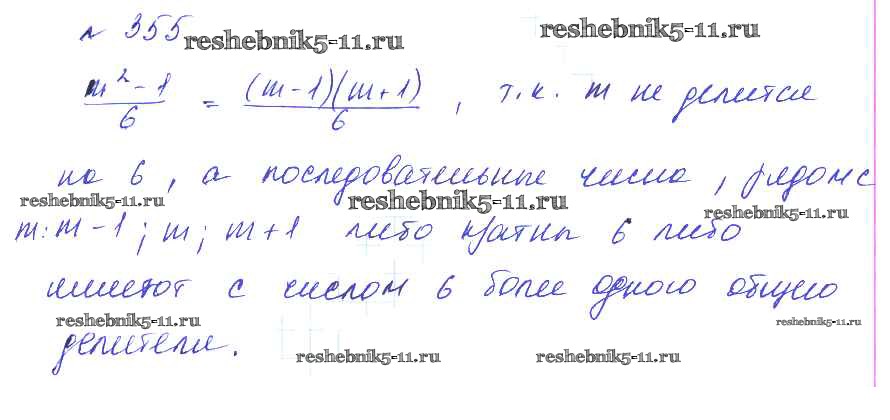 № 355
reshebnik5-11.ru reshebnik5-11.ru
m² - 1 / 6 = (m - 1)(m + 1) / 6 , т.к. m не делится
на 6, а последовательные числа, рядом с
reshebnik5-11.ru reshebnik5-11.ru reshebnik5-11.ru
m: m - 1; m; m + 1 либо кратны 6 либо
имеют с числом 6 более одного общего
reshebnik5-11.ru reshebnik5-11.ru
делителя.
reshebnik5-11.ru reshebnik5-11.ru